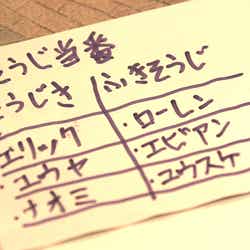 そうじ当番
そうじき ふきそうじ
エリック ・ローレン
・ユウヤ ・エビアン
・ナオミ ・ユウスケ